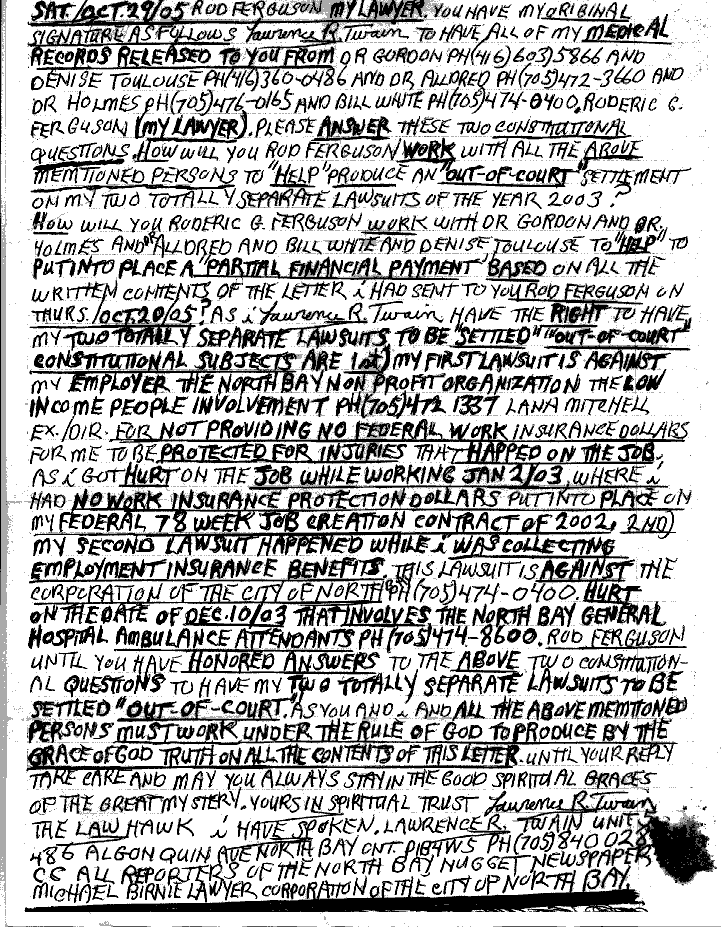 SAT./OCT.29/05 ROD FERGUSON MY LAWYER. YOU HAVE MY ORIGINAL
SIGNATURE AS FOLLOWS Lawrence R. Twain, TO HAVE ALL OF MY MEDICAL
RECORDS RELEASED TO YOU FROM DR GORDON PH(416)603)5866 AND
DENISE TOULOUSE PH(416)360-0486 AND DR ALLDRED PH(705)472-3660 AND
DR HOLMES PH(705)476-0165 AND BILL WHITE PH(705)474-0400. RODERIC G.
FERGUSON (MY LAWYER). PLEASE ANSWER THESE TWO CONSTITUTIONAL
QUESTIONS. HOW WILL YOU ROD FERGUSON WORK WITH ALL THE ABOVE
MEMTIONED PERSONS TO "HELP" PRODUCE AN "OUT-OF-COURT" SETTLEMENT
ON MY TWO TOTALLY SEPARATE LAWSUITS OF THE YEAR 2003?
HOW WILL YOU RODERIC G. FERGUSON WORK WITH DR GORDON AND DR.
HOLMES AND DR ALLDRED AND BILL WHITE AND DENISE TOULOUSE TO "HELP" TO
PUT INTO PLACE A "PARTIAL FINANCIAL PAYMENT" BASED ON ALL THE
WRITTEN CONTENTS OF THE LETTER i HAD SENT TO YOU ROD FERGUSON ON
THURS. /OCT.20/05? AS i Lawrence R. Twain HAVE THE RIGHT TO HAVE
MY TWO TOTALLY SEPARATE LAWSUITS TO BE "SETTLED" "OUT-OF-COURT"
CONSTITUTIONAL SUBJECTS ARE 1st) MY FIRST LAWSUIT IS AGAINST
MY EMPLOYER THE NORTH BAY NON PROFIT ORGANIZATION THE LOW
INCOME PEOPLE INVOLVEMENT PH(705)472 1337 LANA MITCHELL
EX./DIR. FOR NOT PROVIDING NO FEDERAL WORK INSURANCE DOLLARS
FOR ME TO BE PROTECTED FOR INJURIES THAT HAPPED ON THE JOB.
AS i GOT HURT ON THE JOB WHILE WORKING JAN 2/03, WHERE i
HAD NO WORK INSURANCE PROTECTION DOLLARS PUT INTO PLACE ON
MY FEDERAL 78 WEEK JOB CREATION CONTRACT OF 2002, 2ND)
MY SECOND LAWSUIT HAPPENED WHILE i WAS COLLECTING
EMPLOYMENT INSURANCE BENEFITS, THIS LAWSUIT IS AGAINST THE
CORPORATION OF THE CITY OF NORTH PH(705)474-0400. HURT
ON THE DATE OF DEC.10/03 THAT INVOLVES THE NORTH BAY GENERAL
HOSPITAL AMBULANCE ATTENDANTS PH (705)474-8600. ROD FERGUSON
UNTIL YOU HAVE HONORED ANSWERS TO THE ABOVE TWO CONSTITUTION-
AL QUESTIONS TO HAVE MY TWO TOTALLY SEPARATE LAWSUITS TO BE
SETTLED "OUT-OF-COURT". AS YOU AND i AND ALL THE ABOVE MEMTIONED
PERSONS MUST WORK UNDER THE RULE OF GOD TO PRODUCE BY THE
GRACE OF GOD TRUTH ON ALL THE CONTENTS OF THIS LETTER. UNTIL YOUR REPLY
TAKE CARE AND MAY YOU ALWAYS STAY IN THE GOOD SPIRITUAL GRACES
OF THE GREAT MYSTERY. YOURS IN SPIRITUAL TRUST Lawrence R. Twain
THE LAW HAWK i HAVE SPOKEN. LAWRENCE R. TWAIN UNIT
486 ALGONQUIN AVE NORTH BAY ONT. P1B4W5 PH(705)840 028
CC ALL REPORTERS OF THE NORTH BAY NUGGET NEWSPAPER
MICHAEL BIRNIE LAWYER CORPORATION OF THE CITY OF NORTH BAY.